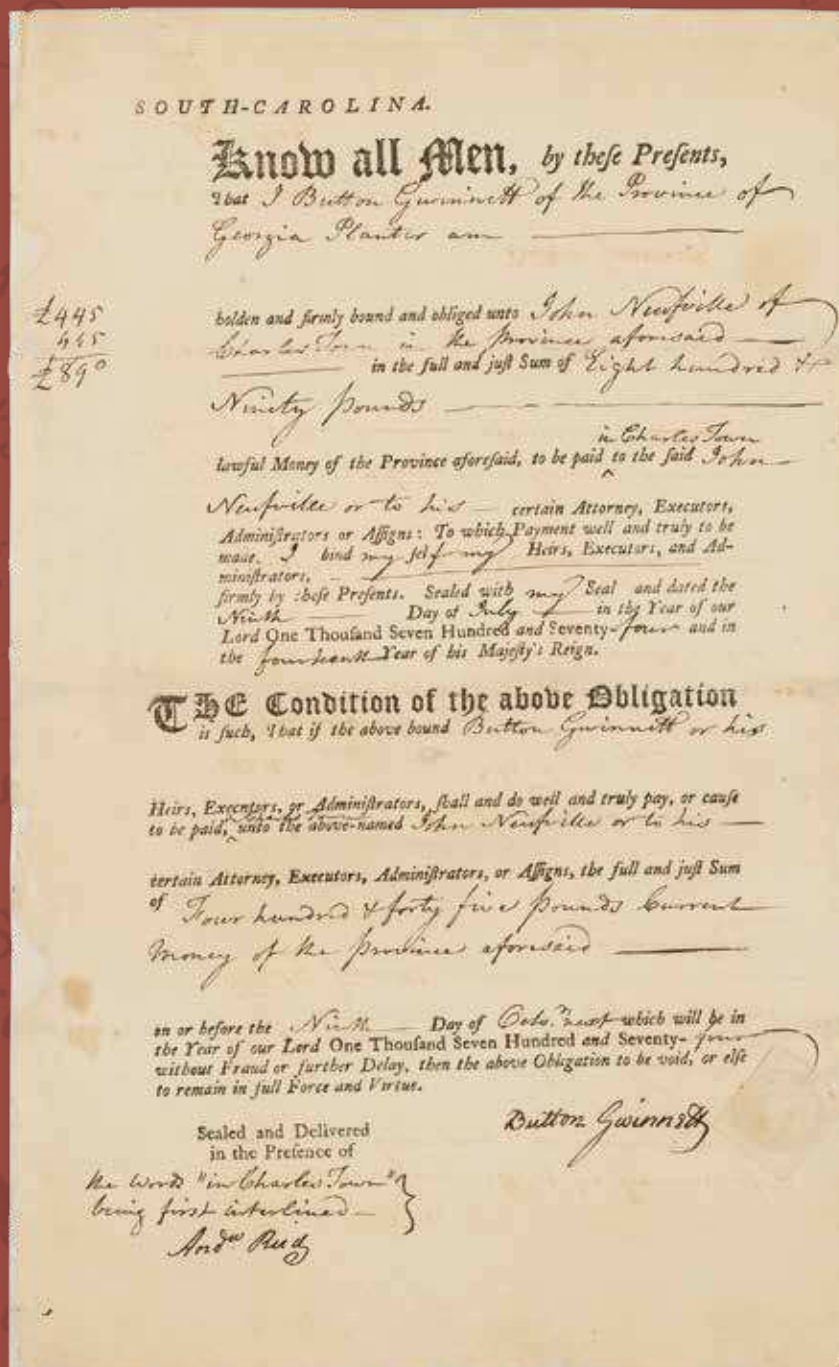 SOUTH-CAROLINA.
Know all Men, by theſe Preſents,
That I Button Gwinnett of the Province of
Georgia Planter am
£445
445
£890
holden and firmly bound and obliged unto John Neufville of
Charles Town in the Province aforesaid
in the full and juſt Sum of Eight hundred &
Ninety pounds
in Charles Town
lawful Money of the Province aforeſaid, to be paid ‸ to the ſaid John
Neufville or to his certain Attorney, Executors,
Adminiſtrators or Aſſigns: To which Payment well and truly to be
made, I bind my self my Heirs, Executors, and Ad-
miniſtrators,
firmly by theſe Preſents. Sealed with my Seal and dated the
Ninth Day of July in the Year of our
Lord One Thouſand Seven Hundred and Seventy-four and in
the fourteenth Year of his Majeſty's Reign.
THE Condition of the above Obligation
is ſuch, That if the above bound Button Gwinnett or his
Heirs, Executors, or Adminiſtrators, ſhall and do well and truly pay, or cauſe
to be paid, unto the above-named John Neufville or to his
certain Attorney, Executors, Adminiſtrators, or Aſſigns, the full and juſt Sum
of Four hundred & forty five pounds Current
Money of the Province aforesaid
on or before the Ninth Day of Octo.r next which will be in
the Year of our Lord One Thouſand Seven Hundred and Seventy-four
without Fraud or further Delay, then the above Obligation to be void, or elſe
to remain in full Force and Virtue.
Button Gwinnett
Sealed and Delivered
in the Preſence of
the words "in Charles Town"
being first interlined
And.w Reid